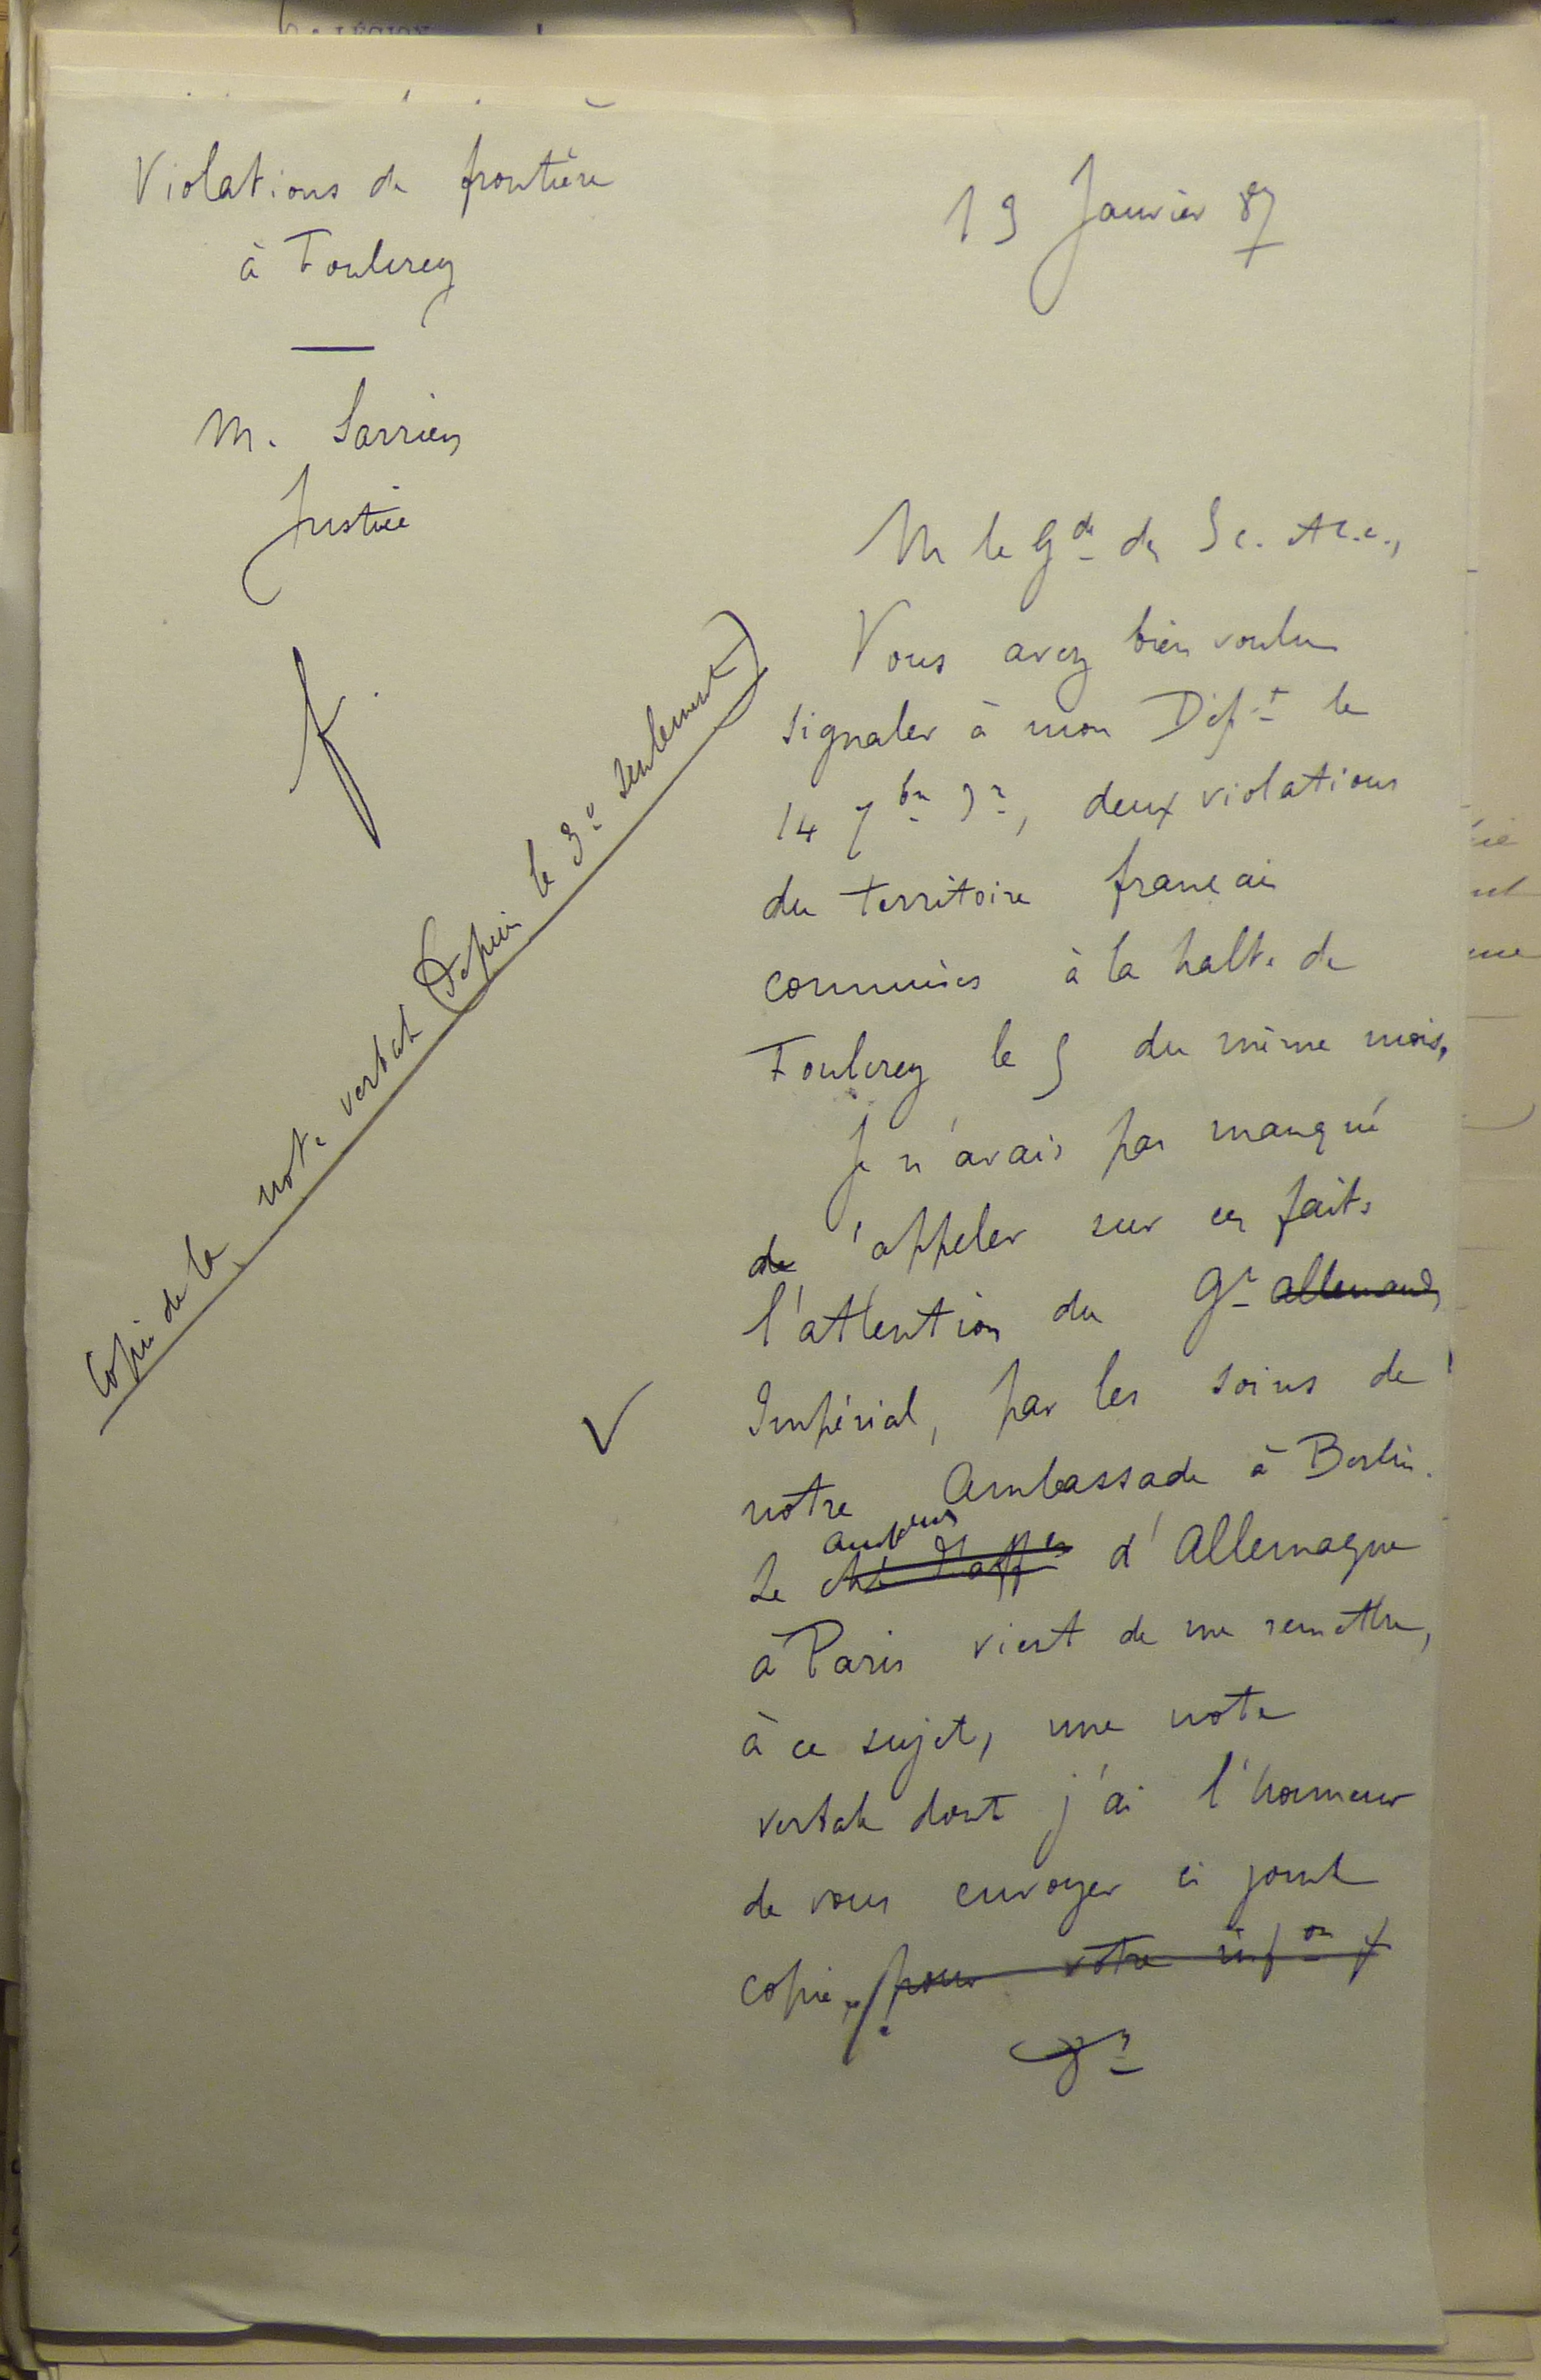 Violations de frontière
à Foulcrey
M. Sarrien
Justice
Copie de la note verbale (Copier le 3º seulement)
19 Janvier 87
M le Gde des Sc. etc.,
Vous avez bien voulu
signaler à mon Dépt le
14 7bre dr, deux violations
du territoire français
commises à la halte de
Foulcrey le 5 du même mois.
Je n'avais pas manqué
d'appeler sur ces faits
l'attention du Gt allemand
Impérial, par les soins de
notre Ambassade à Berlin.
ambeur
Le ché d'affes d'Allemagne
à Paris vient de me remettre,
à ce sujet, une note
verbale dont j'ai l'honneur
de vous envoyer ci joint
copie, pour votre infon